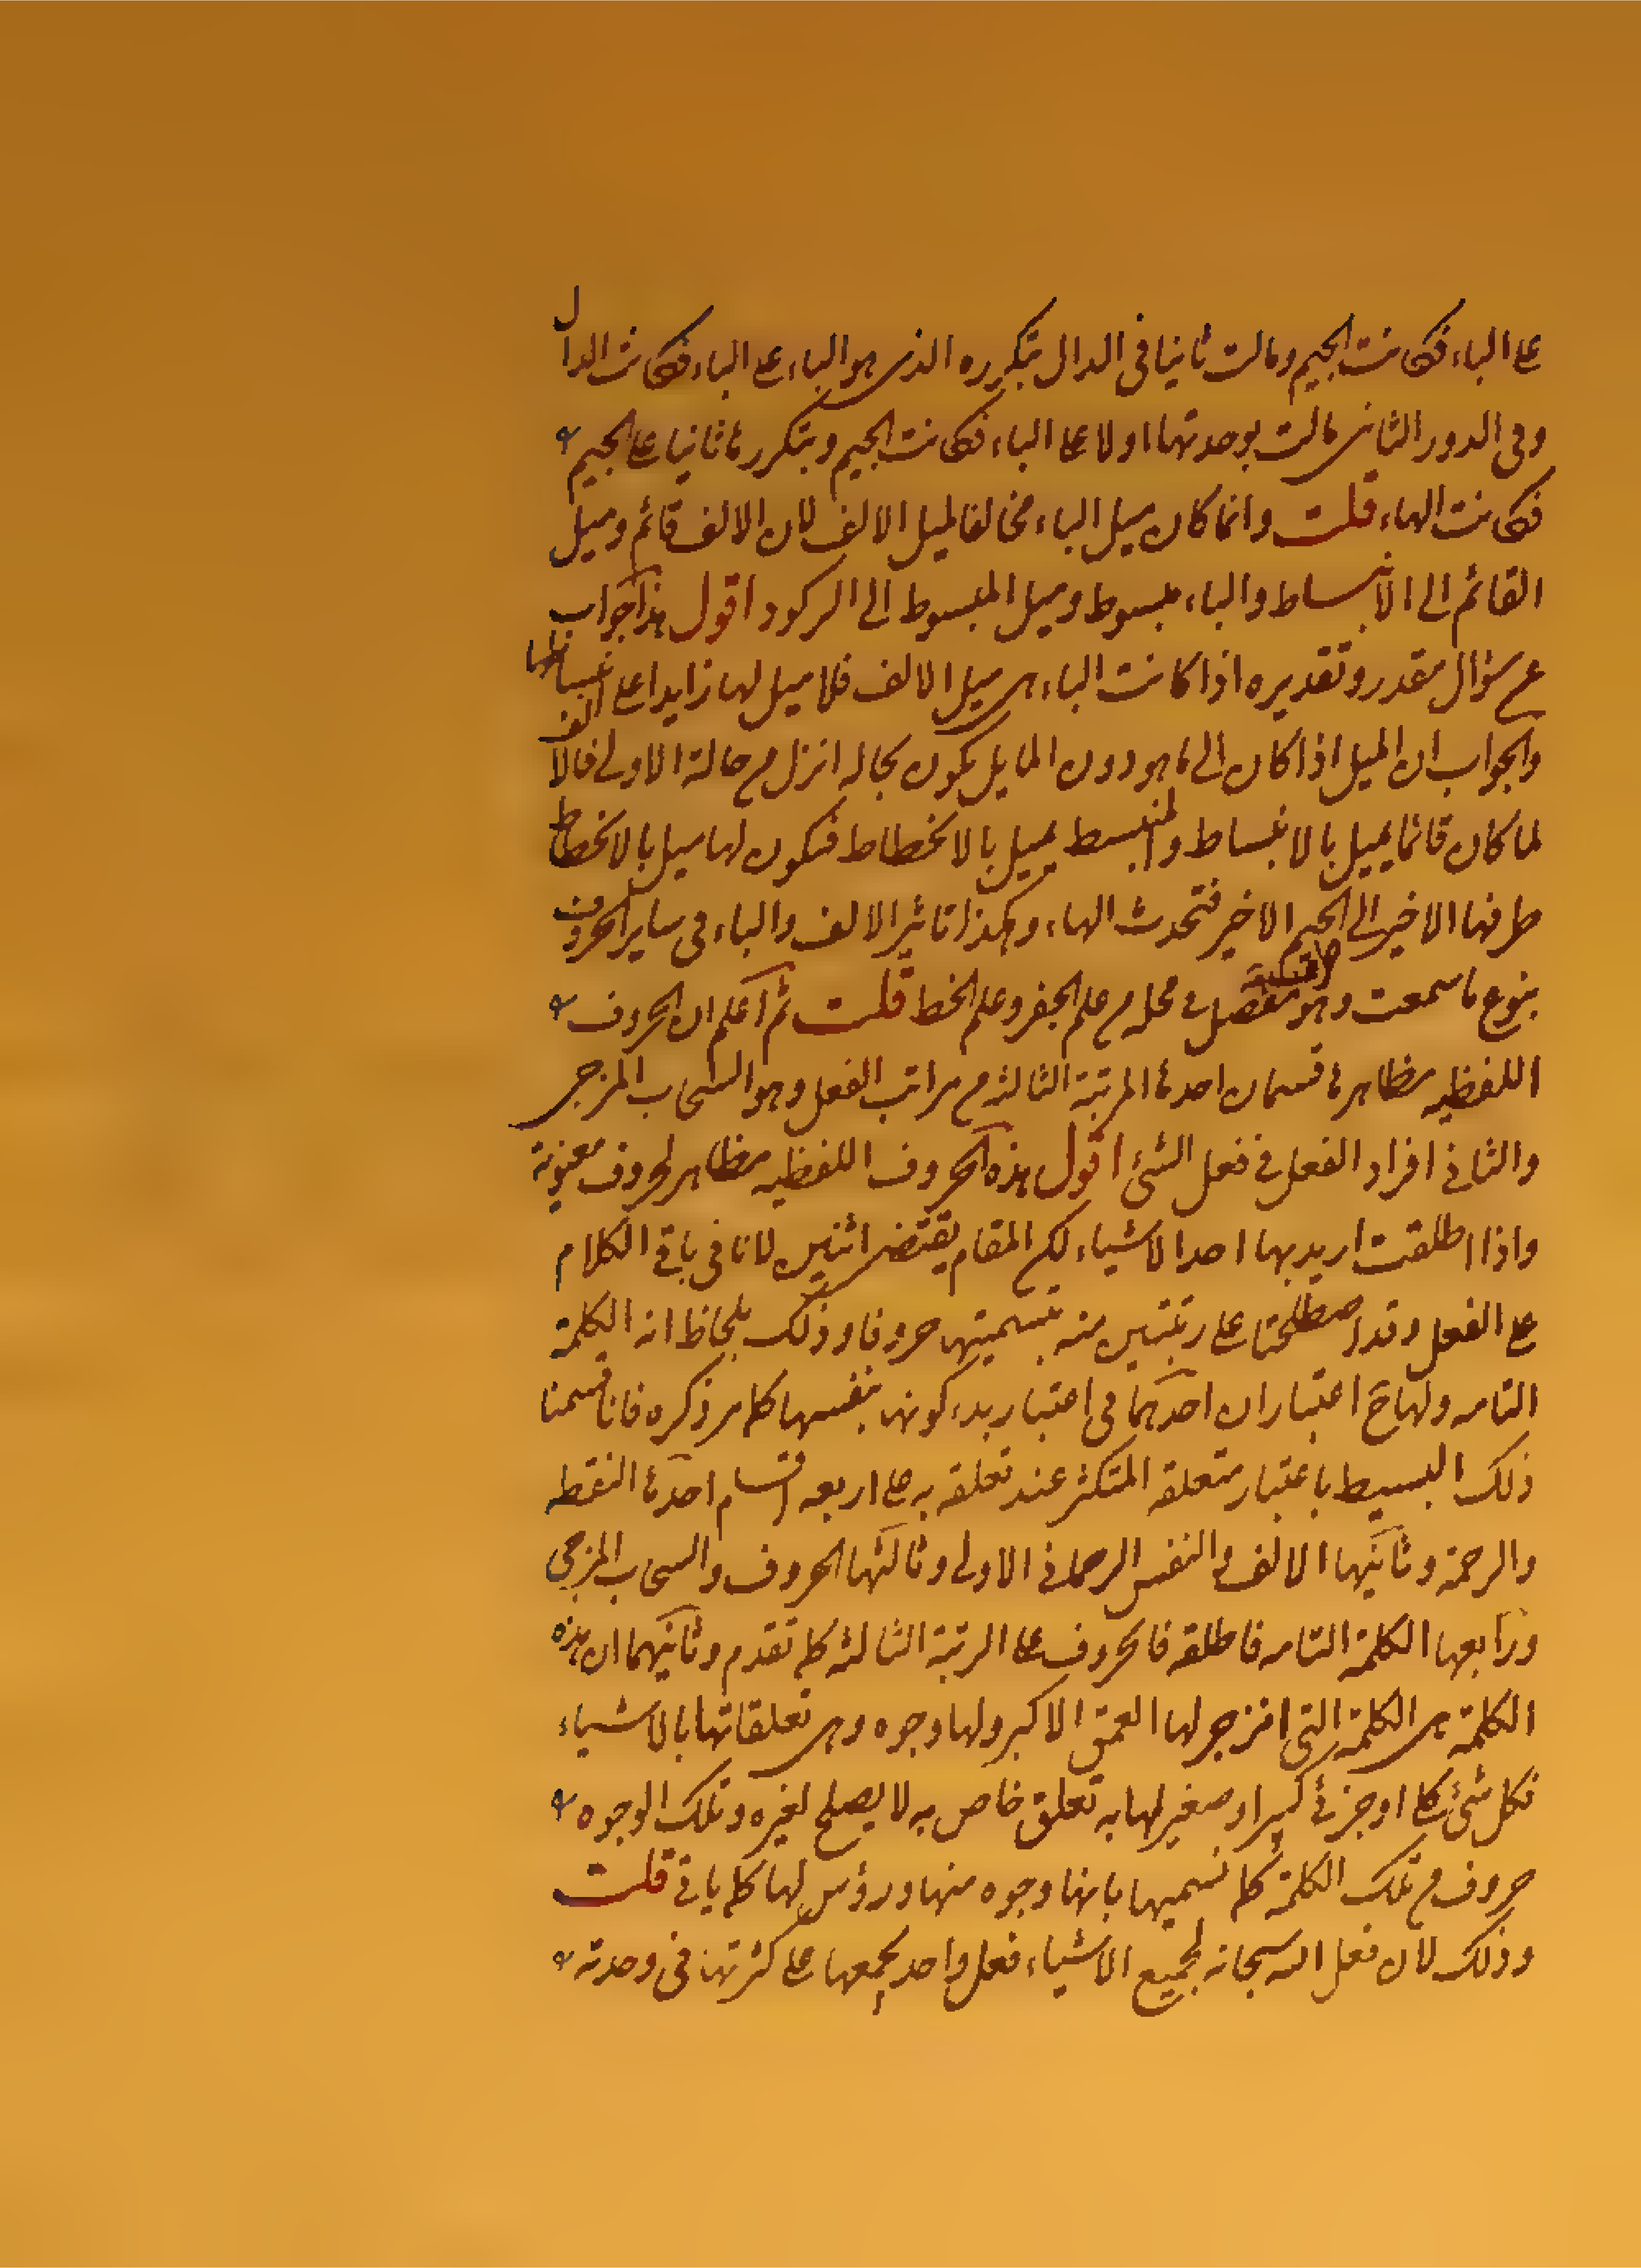 على الباء فكانت الجيم ومالت ثانيا فى الدال بتكرره الذى هو الباء على الباء فكانت الدال
وفى الدور الثانى مالت بوحدتها اولا على الباء فكانت الجيم وبتكررها ثانيا على الجيم
فكانت الهاء قلت وانما كان ميل الباء مخالفا لميل الالف لان الالف قائم وميل
القائم الى الانبساط والباء مبسوط وميل المبسوط الى الركود اقول هذا جواب
عن سؤال مقدر وتقديره اذا كانت الباء هى ميل الالف فلا ميل لها زايدا على انبساطها
والجواب ان الميل اذا كان الى ما هو دون المايل يكون بحاله انزل من حالته الاولى فالالف
لما كان قائما يميل بالانبساط والمنبسط يميل بالانخطاط فيكون لها ميل بالانخطاط
طرفها الاخير الى الجيم الاخير فتحدث الهاء وهكذا تاثير الالف والباء فى ساير الحروف
بنوع ما سمعت وهو مفصل فى محله من علم الجفر وعلم الخط قلت ثم اعلم ان الحروف
اللفظيه مظاهرها قسمان احدها المرتبة الثالثه من مراتب الفعل وهو السحاب المزجر
والثانى افراد الفعل فى فعل الشئ اقول هذه الحروف اللفظيه مظاهر لحروف معنوية
واذا اطلقت اريد بها احد الاشياء لكن المقام يقتضى اثنين لانا فى باقى الكلام
على الفعل وقد اصطلحنا على رتبتين منه بتسميتها حروفا وذلك بلحاظ انه الكلمة
التامه ولها ح اعتباران احدهما فى اعتبار بدء كونها بنفسها كما مر ذكره فانا قسمنا
ذلك البسيط باعتبار متعلقه المتكثر عند تعلقه به على اربعه اقسام احدها النقطه
والرحمة وثانيها الالف والنفس الرحمانى الاولى وثالثها الحروف والسحاب المزجى
ورابعها الكلمة التامه فاطلقه فالحروف على الرتبة الثالثه كما تقدم وثانيهما ان هذه
الكلمة هى الكلمة التى انزجر لها العمق الاكبر ولها وجوه وهى تعلقاتها بالاشياء
فكل شئ كلى او جزئى كبير او صغير لها به تعلق خاص به لا يصلح لغيره وتلك الوجوه
حروف من تلك الكلمة كما نسميها بانها وجوه منها ورؤس لها كما ياتى قلت
وذلك لان فعل الله سبحانه لجميع الاشياء فعل واحد يجمعها على كثرتها فى وحدته